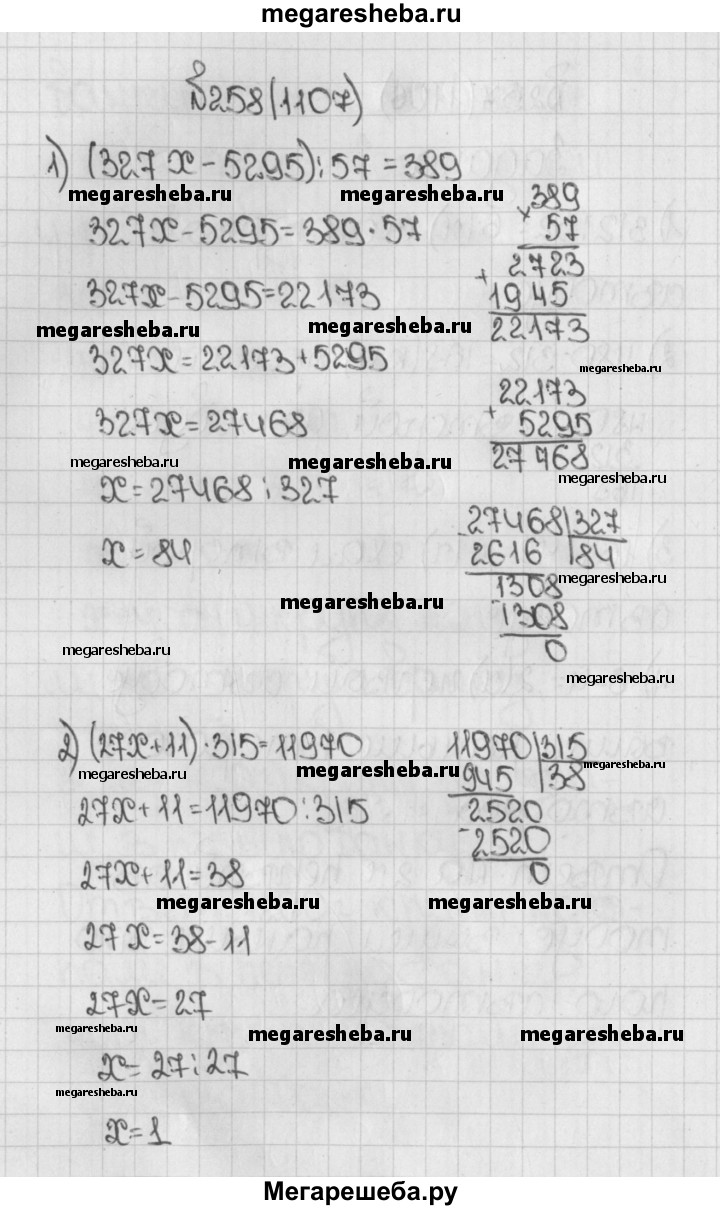 megaresheba.ru
№258(1107)
1) (327x-5295):57=389
megaresheba.ru megaresheba.ru
327x-5295=389·57
327x-5295=22173
megaresheba.ru megaresheba.ru
327x=22173+5295
327x=27468
megaresheba.ru megaresheba.ru
x=27468:327
x=84
megaresheba.ru
megaresheba.ru
×389
57
2723
+1945
22173
megaresheba.ru
22173
+5295
27468
megaresheba.ru
-27468|327
2616 |84
megaresheba.ru
1308
-1308
0
megaresheba.ru
2) (27x+11)·315=11970
megaresheba.ru megaresheba.ru
27x+11=11970:315
27x+11=38
megaresheba.ru megaresheba.ru
27x=38-11
27x=27
megaresheba.ru megaresheba.ru megaresheba.ru
x=27:27
megaresheba.ru
x=1
11970|315
945 |38
megaresheba.ru
2520
-2520
0
Мегарешеба.ру